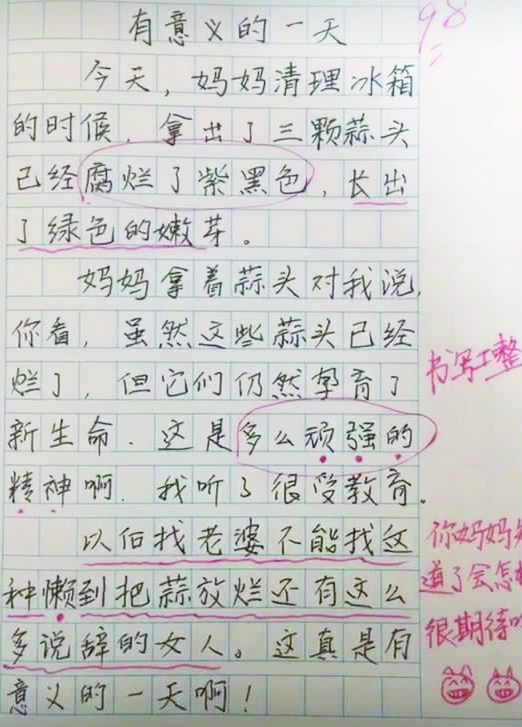 有意义的一天
98
今天，妈妈清理冰箱
的时候，拿出了三颗蒜头
已经腐烂了紫黑色，长出
了绿色的嫩芽。
妈妈拿着蒜头对我说，
你看，虽然这些蒜头已经
烂了，但它们仍然孕育了
新生命．这是多么顽强的
精神啊．我听了很受教育。
以后找老婆不能找这
种懒到把蒜放烂还有这么
多说辞的女人。这真是有
意义的一天啊！
书写工整
你妈妈知
道了会怎
很期待